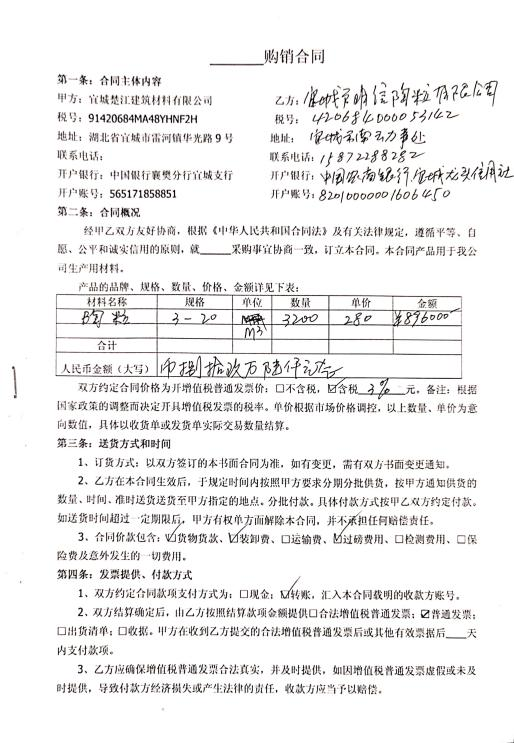 购销合同
第一条：合同主体内容
甲方：宜城楚江建筑材料有限公司 乙方：宜城市明信陶粒有限公司
税号：91420684MA48YHNF2H 税号：420684000053142
地址：湖北省宜城市雷河镇华光路9号 地址：宜城市 办事处
联系电话： 联系电话：15872288282
开户行：中国银行襄樊分行宜城支行 开户行：中国 银行宜城 信用社
开户账号：565171858851 开户账号：82010000001606450
第二条：合同概况
经甲乙双方友好协商，根据《中华人民共和国合同法》及有关法律规定，遵循平等、自
愿、公平和诚实信用的原则，就____采购事宜协商一致，订立本合同。本合同产品用于我公
司生产用材料。
产品的品牌、规格、数量、价格、金额详见下表：
材料名称 规格 单位 数量 单价 金额
陶粒 3-20 M3 3200 280 ¥896000
合计
人民币金额（大写） 币捌拾玖万陆仟元整
双方约定合同价格为开增值税普通发票价：☐不含税，☑含税 3% 元，备注：根据
国家政策的调整而决定开具增值税发票的税率。单价根据市场价格调控，以上数量、单价为意
向数值，具体以收货单或发货单实际交易数量结算。
第三条：送货方式和时间
1、订货方式：以双方签订的本书面合同为准，如有变更，需有双方书面变更通知。
2、乙方在本合同生效后，于规定时间内按照甲方要求分期分批供货，按甲方通知供货的
数量、时间、准时送货送货至甲方指定的地点。分批付款。具体付款方式按甲乙双方约定付款。
如送货时间超过一定期限后，甲方有权单方面解除本合同，并不承担任何赔偿责任。
3、合同价款包含：☑货物货款、☑装卸费、☐运输费、☑过磅费用、☐检测费用、☐保
险费及意外发生的一切费用。
第四条：发票提供、付款方式
1、双方约定合同款项支付方式为：☐现金；☑转账，汇入本合同载明的收款方账号。
2、双方结算确定后，由乙方按照结算款项金额提供☐合法增值税普通发票；☑普通发票；
☐出货清单；☐收据。甲方在收到乙方提交的合法增值税普通发票后或其他有效票据后____天
内支付款项。
3、乙方应确保增值税普通发票合法真实，并及时提供，如因增值税普通发票虚假或未及
时提供，导致付款方经济损失或产生法律的责任，收款方应当予以赔偿。